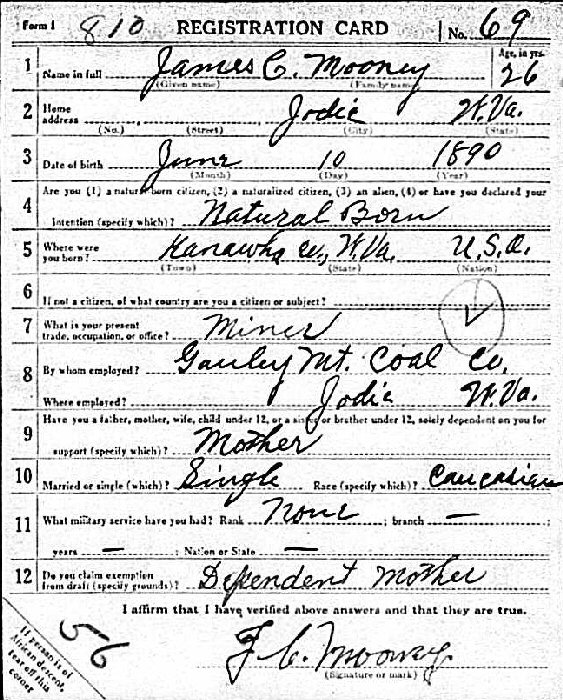 Form 1 810 REGISTRATION CARD No. 69
1 Name in full James C. Mooney Age, in yrs. 26
(Given name) (Family name)
2 Home address Jodie W.Va.
(No.) (Street) (City) (State)
3 Date of birth June 10 1890
(Month) (Day) (Year)
Are you (1) a natural born citizen, (2) a naturalized citizen, (3) an alien, (4) or have you declared your
4 intention (specify which)? Natural Born
5 Where were you born? Kanawha Co., W.Va. U.S.A.
(Town) (State) (Nation)
6 If not a citizen, of what country are you a citizen or subject?
7 What is your present trade, occupation, or office? Miner
8 By whom employed? Gauley Mt. Coal Co.
Where employed? Jodie W.Va.
Have you a father, mother, wife, child under 12, or a sister or brother under 12, solely dependent on you for
9 support (specify which)? Mother
10 Married or single (which)? Single Race (specify which)? Caucasian
11 What military service have you had? Rank None ; branch — ;
years — ; Nation or State —
12 Do you claim exemption from draft (specify grounds)? Dependent Mother
I affirm that I have verified above answers and that they are true.
56
J. C. Mooney
(Signature or mark)
If person is of
African descent,
tear off this
corner